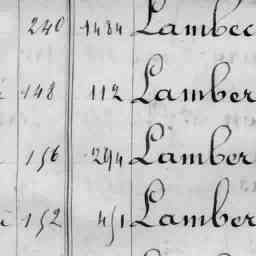 240 1484 Lambec
148 112 Lamber
156 294 Lamber
152 451 Lamber